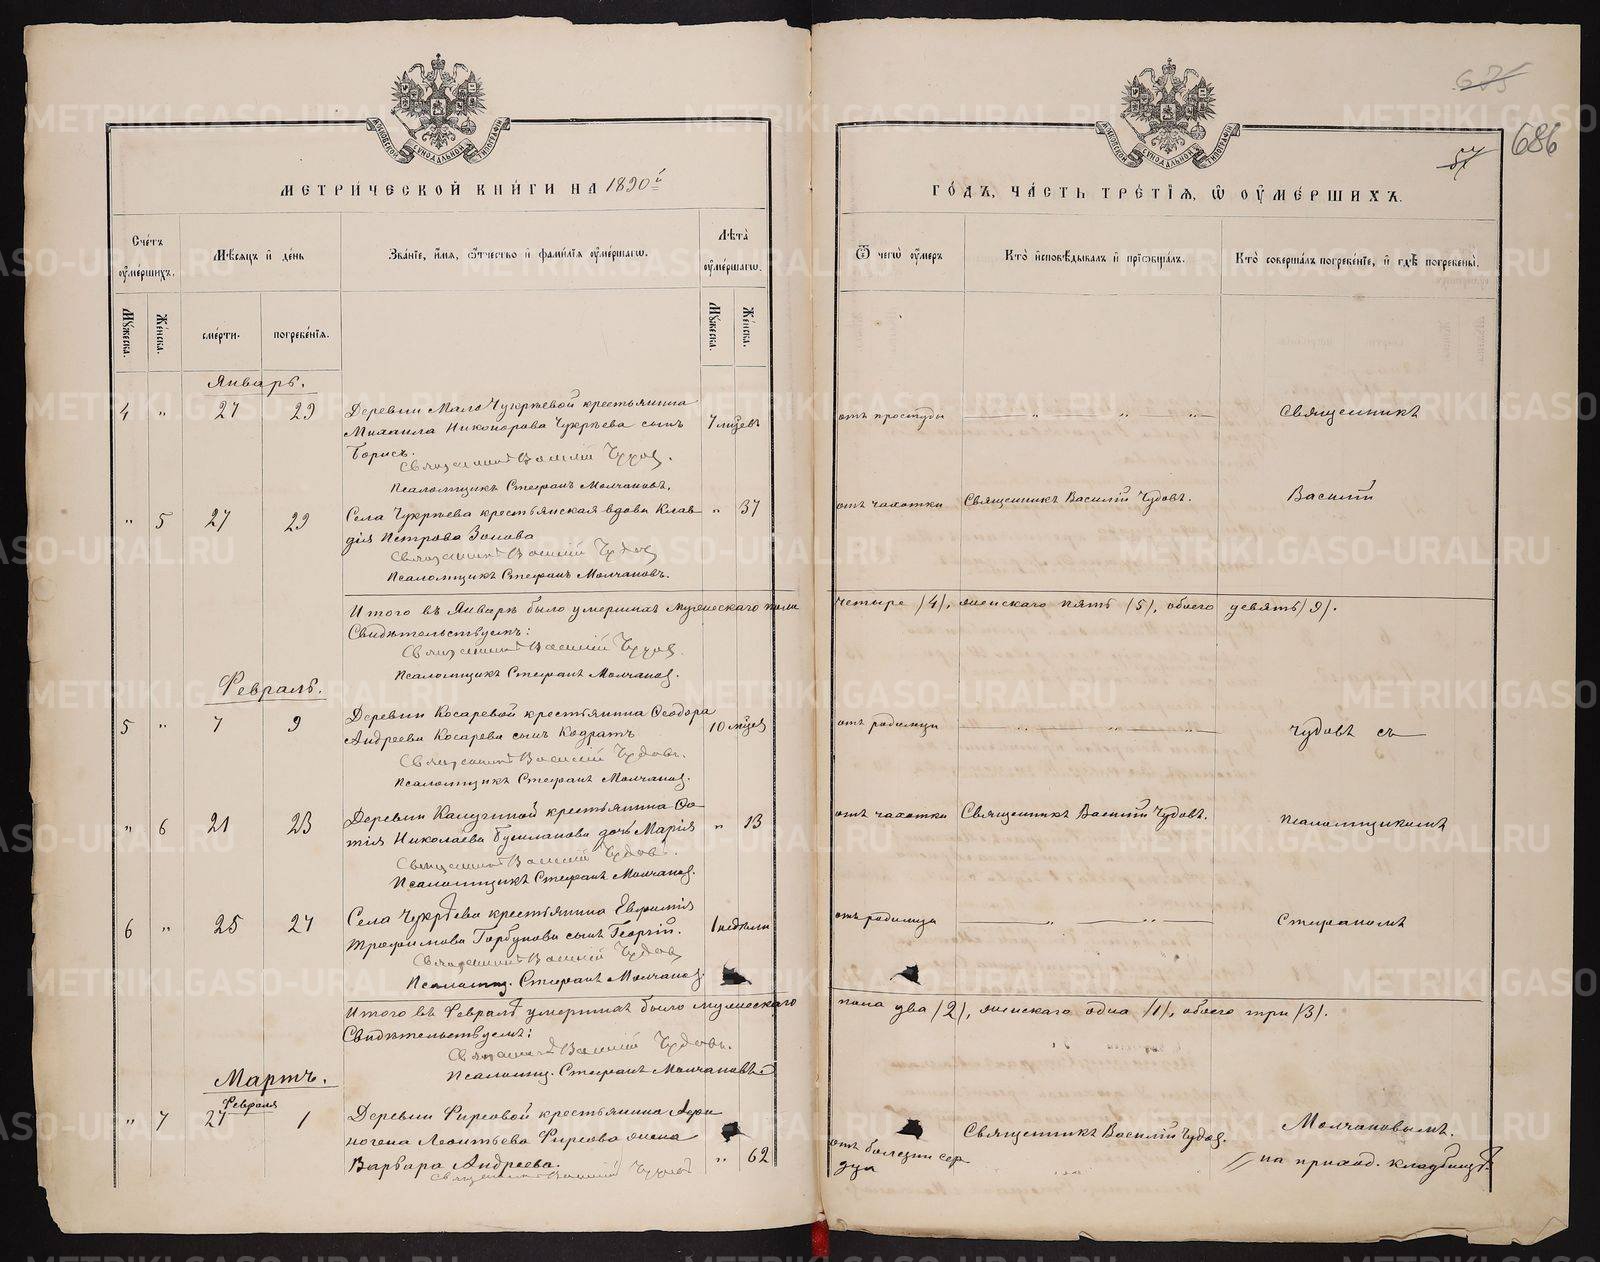 МЕТРИЧЕСКОЙ КНИГИ НА 1890й
Счетъ оумершихъ.
Мѣсяцъ и день
Званіе, имя, отчество и фамилія оумершагѡ.
Лѣта оумершагѡ.
Мужеска.
Женска.
смерти.
погребенія.
Мужеска.
Женска.
Январь.
4 " 27 29 Деревни Мало Чукрѣевой крестьянина
Михаила Никонорова Чукрѣева сынъ 7 мцевъ
Борисъ.
Священникъ Василій Чудов.
Псаломщикъ Стефанъ Молчановъ.
" 5 27 29 Села Чукрѣева крестьянская вдова Клав- " 37
дія Петрова Зонова
Священникъ Василій Чудов
Псаломщикъ Стефанъ Молчановъ.
Итого въ Январѣ было умершихъ мужескаго пола
Свидѣтельствуемъ:
Священникъ Василій Чудов.
Псаломщикъ Стефанъ Молчанов.
Февраль.
5 " 7 9 Деревни Косаревой крестьянина Ѳеодора 10 мцев
Андреева Косарева сынъ Кодратъ
Священникъ Василій Чудовъ.
Псаломщикъ Стефанъ Молчанов.
" 6 21 23 Деревни Калугиной крестьянина Фо- " 13
тія Николаева дочь Марія
Священникъ Василій Чудовъ.
Псаломщикъ Стефанъ Молчанов.
6 " 25 27 Села Чукрѣева крестьянина Евфимія 1 недѣли
Трофимова Горбунова сынъ Георгій.
Священникъ Василій Чудов
Псаломщ. Стефанъ Молчанов.
Итого въ Февралѣ умершихъ было мужескаго
Свидѣтельствуемъ:
Священникъ Василій Чудовъ.
Псаломщ. Стефанъ Молчановъ
Мартъ.
Февраля
" 7 27 1 Деревни Фирсовой крестьянина
Леонтьева Фирсова жена
Варвара Андреева. " 62
Священникъ Василій Чудов
685
57
686
ГОДЪ, ЧАСТЬ ТРЕТІЯ, Ѿ ОУМЕРШИХЪ.
Ѿ чегѡ оумеръ
Кто исповѣдывалъ и пріобщалъ.
Кто совершалъ погребеніе, и гдѣ погребены.
отъ простуды " " " Священникъ
отъ чахотки Священникъ Василій Чудовъ. Василій
четыре /4/, женскаго пять /5/, обоего девять /9/.
отъ родимца " " " Чудовъ съ
отъ чахотки Священникъ Василій Чудовъ. псаломщикомъ
отъ родимца " " Стефаномъ
пола два /2/, женскаго одна /1/, обоего три /3/.
отъ болезни сер- Священникъ Василій Чудов. Молчановымъ.
дца на приход. кладбищѣ
METRIKI.GASO-URAL.RU